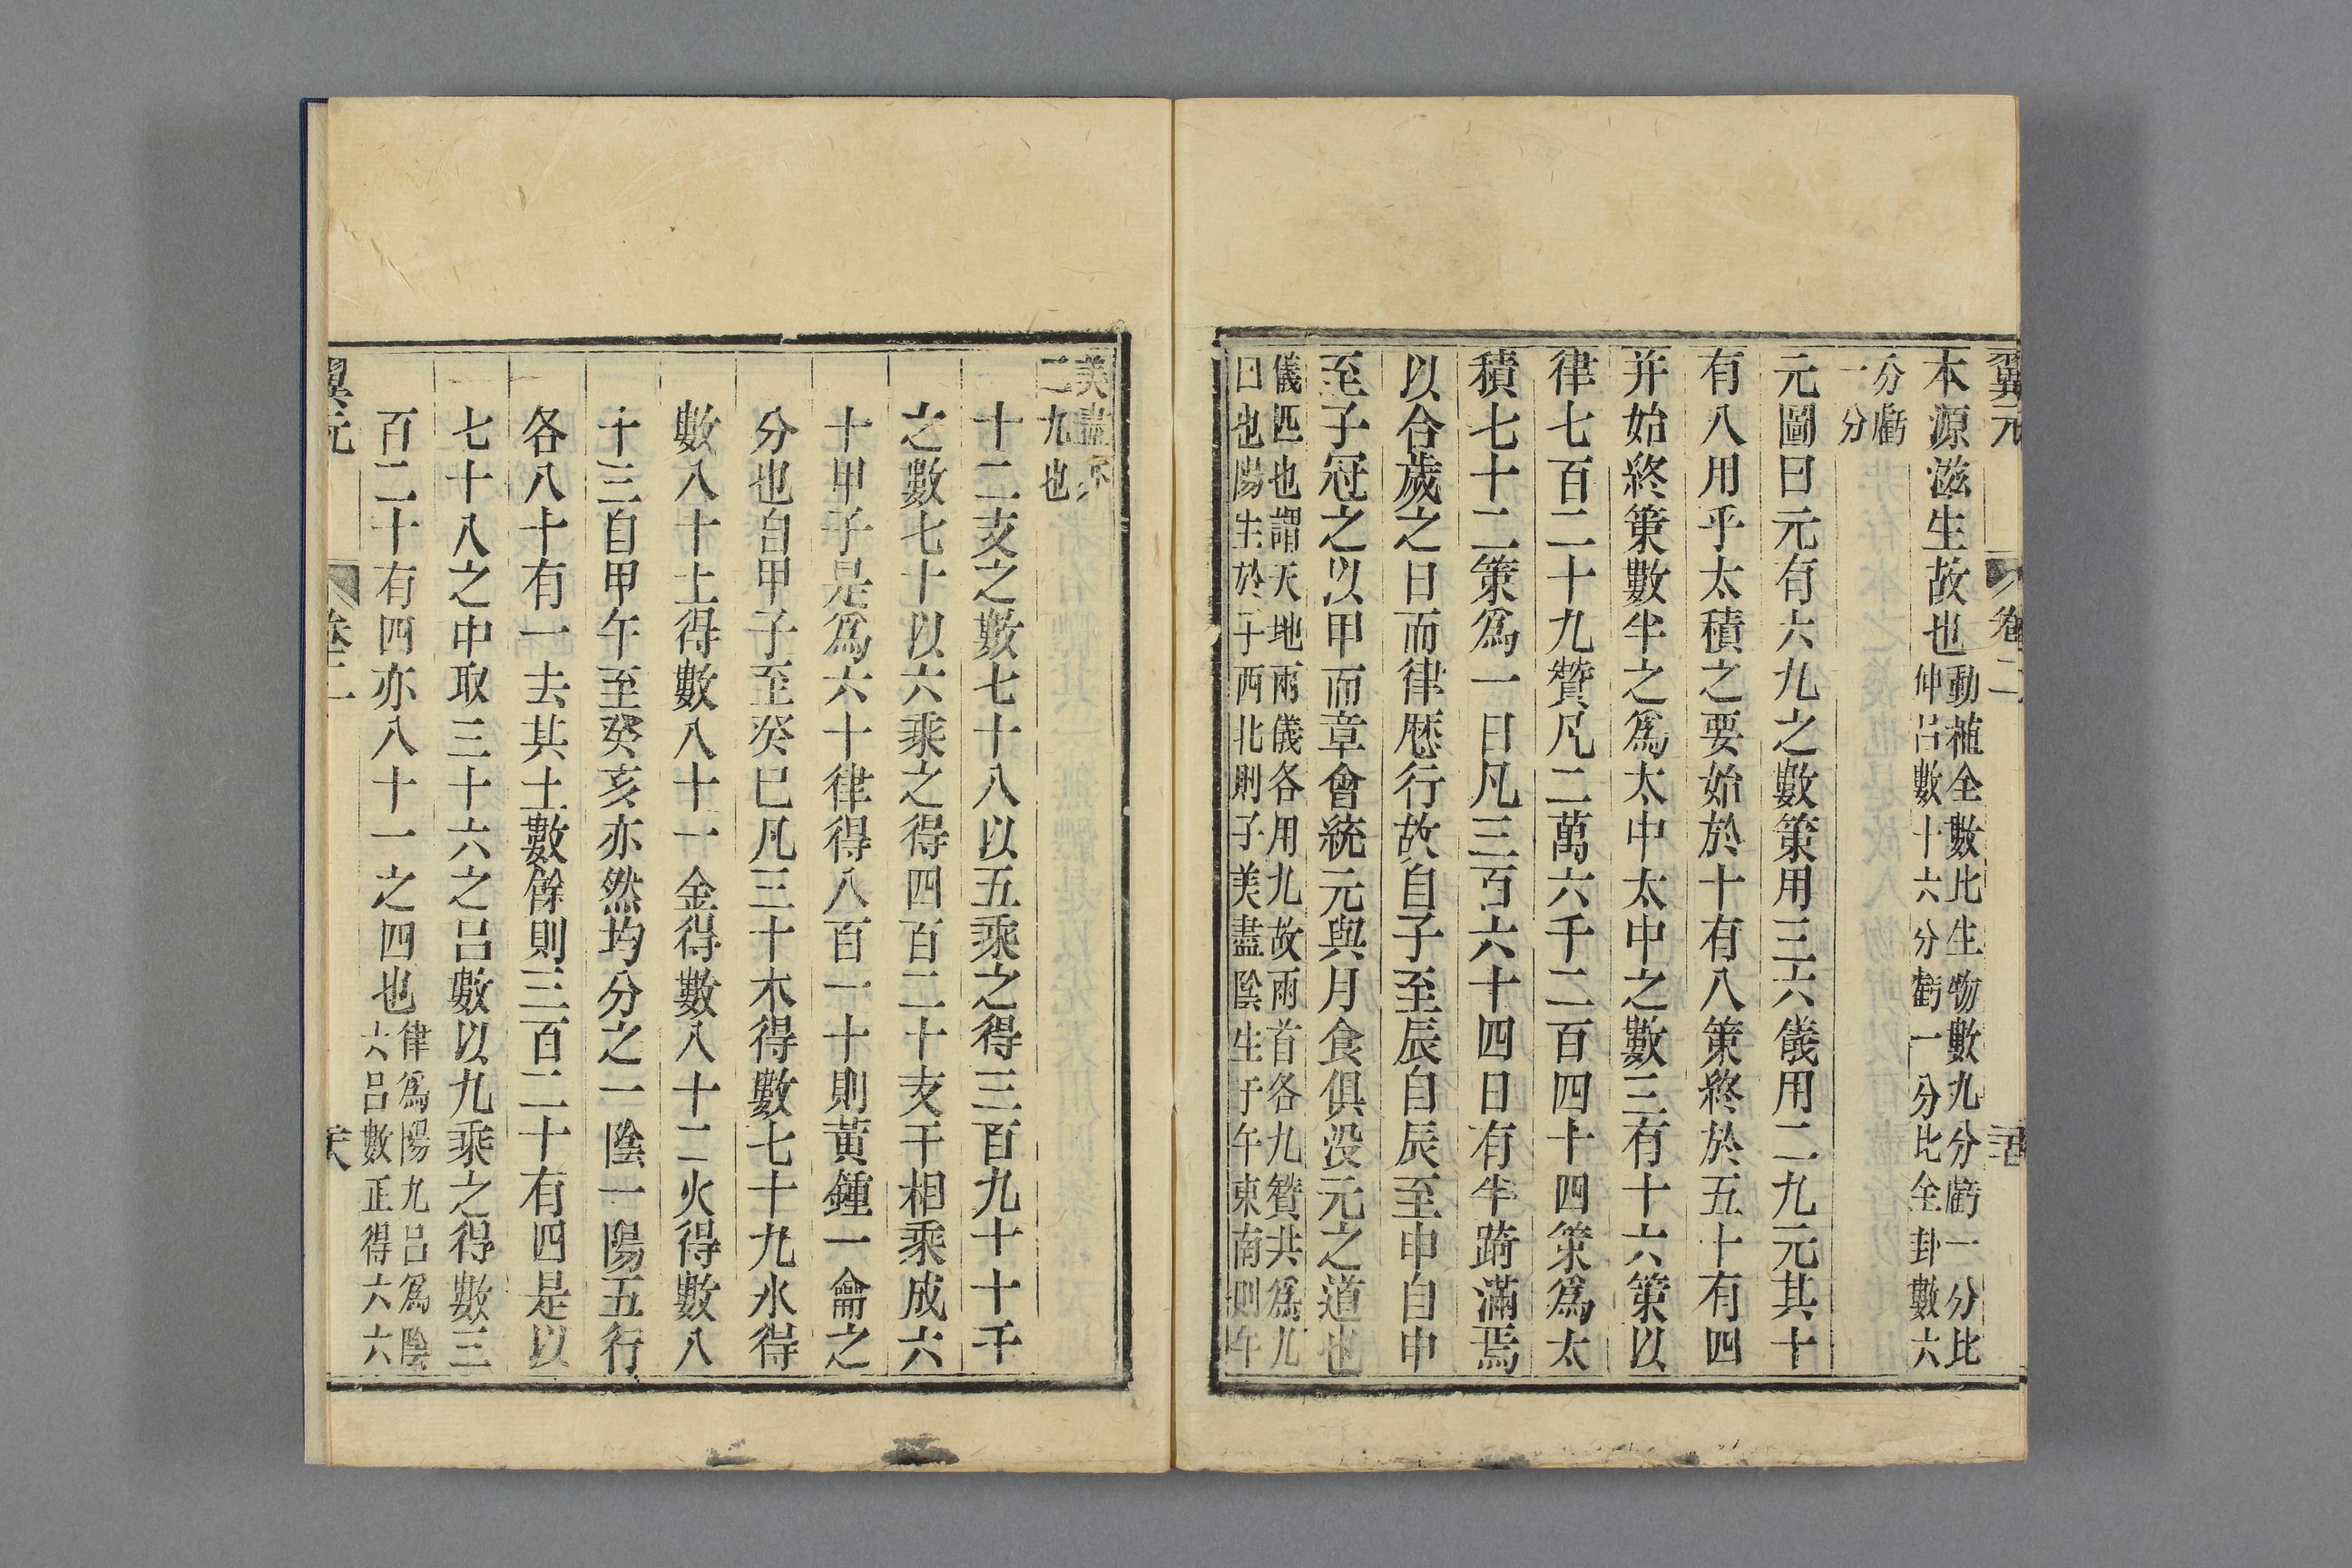 翼元 卷二
本源滋生故也動植全數比生物數九分虧一分比
仲呂數十六分虧一分比全卦數六
分虧
一分
元圖曰元有六九之數策用三六儀用二九元其十
有八用乎太積之要始於十有八策終於五十有四
并始終策數半之為太中太中之數三有十六策以
律七百二十九贊凡二萬六千二百四十四策為太
積七十二策為一日凡三百六十四日有半踦滿焉
以合歲之日而律厯行故自子至辰自辰至申自申
至子冠之以甲而章會統元與月食俱没元之道也
儀匹也謂天地兩儀各用九故兩首各九贊共為九
日也陽生於子西北則子美盡陰生于午東南則午
美盡
二九也
十二支之數七十八以五乘之得三百九十十干
之數七十以六乘之得四百二十支干相乘成六
十甲子是為六十律得八百一十則黃鍾一龠之
分也自甲子至癸巳凡三十木得數七十九水得
數八十土得數八十一金得數八十二火得數八
十三自甲午至癸亥亦然均分之一陰一陽五行
各八十有一去其土數餘則三百二十有四是以
七十八之中取三十六之呂數以九乘之得數三
百二十有四亦八十一之四也律為陽九呂為陰
六呂數正得六六
翼元 卷二